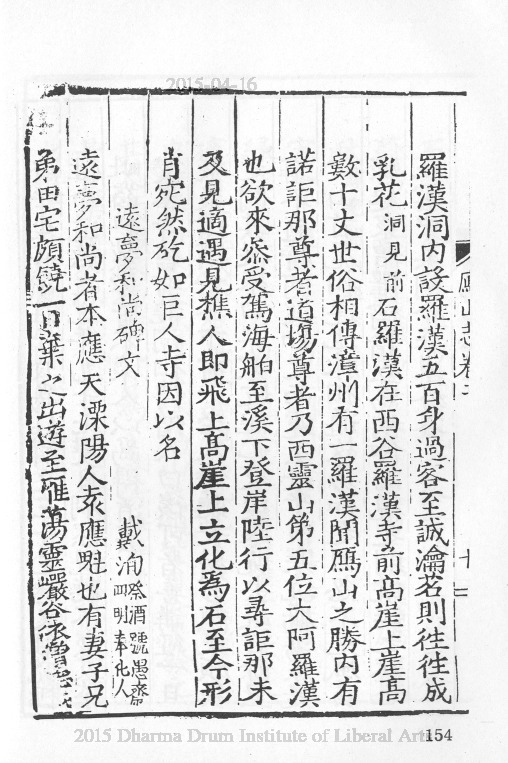 2015-04-16
鴈山志卷
羅漢洞內設羅漢五百身過客至誠瀹茗則往往成
乳花洞見前石羅漢在西谷羅漢寺前高崖上崖高
數十丈世俗相傳漳州有一羅漢聞鴈山之勝內有
諾詎那尊者道塲尊者乃西靈山第五位大阿羅漢
也欲來叅受駕海舶至溪下登岸陸行以尋詎那未
及見適遇見樵人即飛上高崖上立化爲石至今形
肖宛然矻如巨人寺因以名
遠夢和尚碑文
戴洵祭酒號愚齋四明奉化人
遠夢和尚者本應天溧陽人袁應魁也有妻子兄
弟田宅頗饒一日棄之出遊至雁蕩靈巖谷依僧
2015 Dharma Drum Institute of Liberal Arts
154